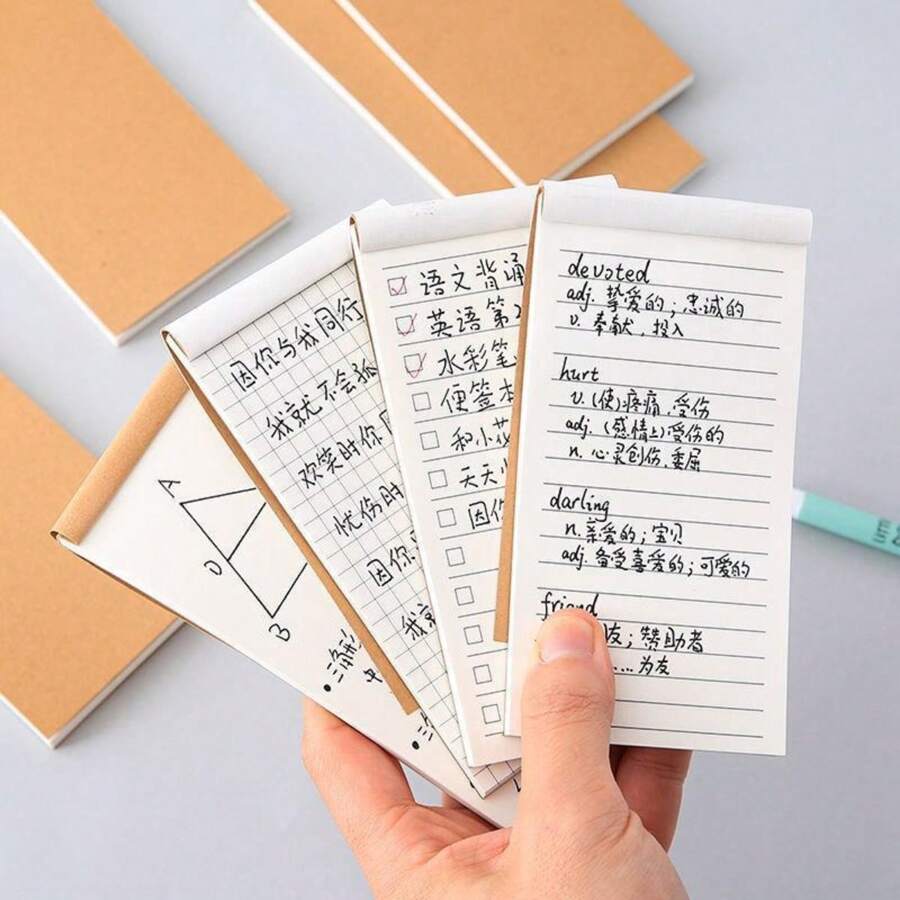 A
D
B
因你与我同行
我就不会孤
欢笑时你
忧伤时
因你
我
语文背诵
英语第
水彩笔
便签本
和小花
天天
因你
devoted
adj. 挚爱的；忠诚的
v. 奉献，投入
hurt
v. (使)疼痛，受伤
adj. (感情上)受伤的
n. 心灵创伤，委屈
darling
n. 亲爱的；宝贝
adj. 备受喜爱的；可爱的
friend
友；赞助者
……为友